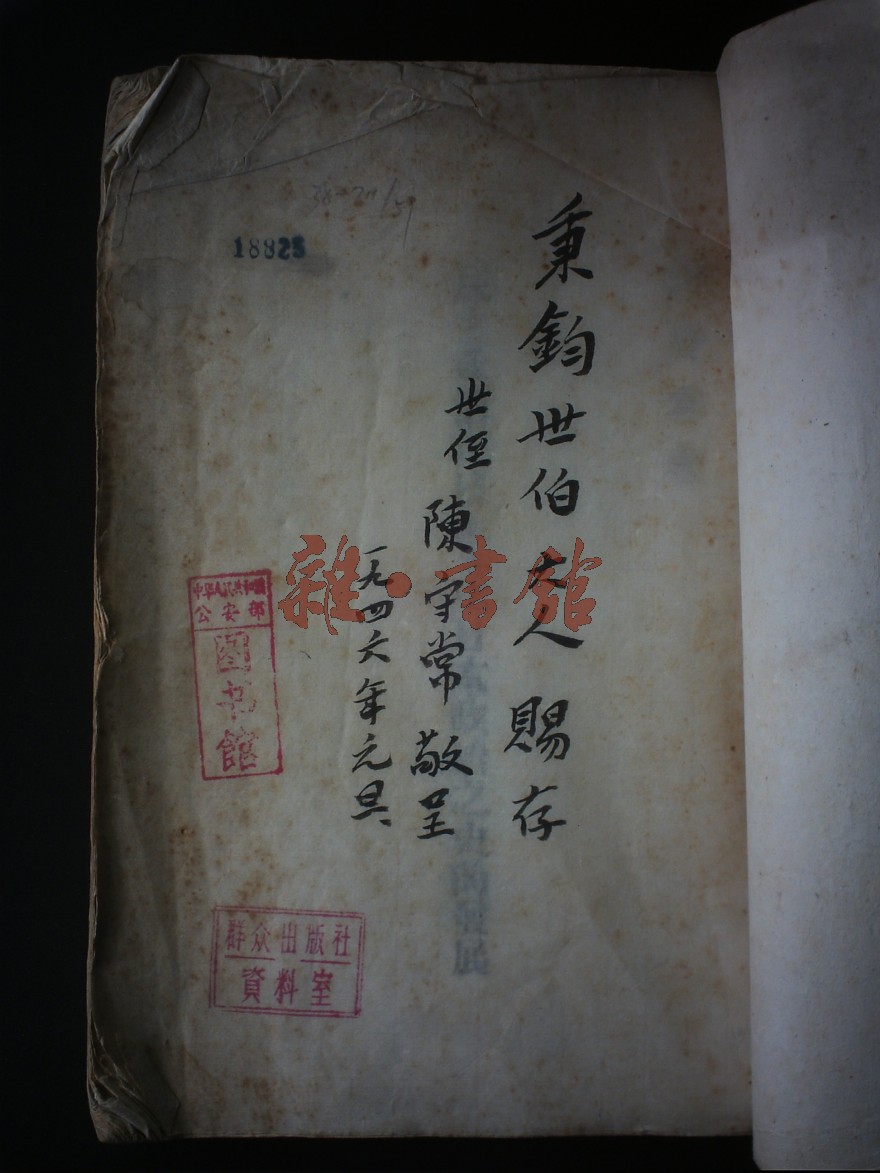 秉鈞世伯大人 賜存
世侄 陳守常 敬呈
一九四六年元旦、
18825
中华人民共和國
公安部
图书馆
群众出版社
資料室
雜·書館